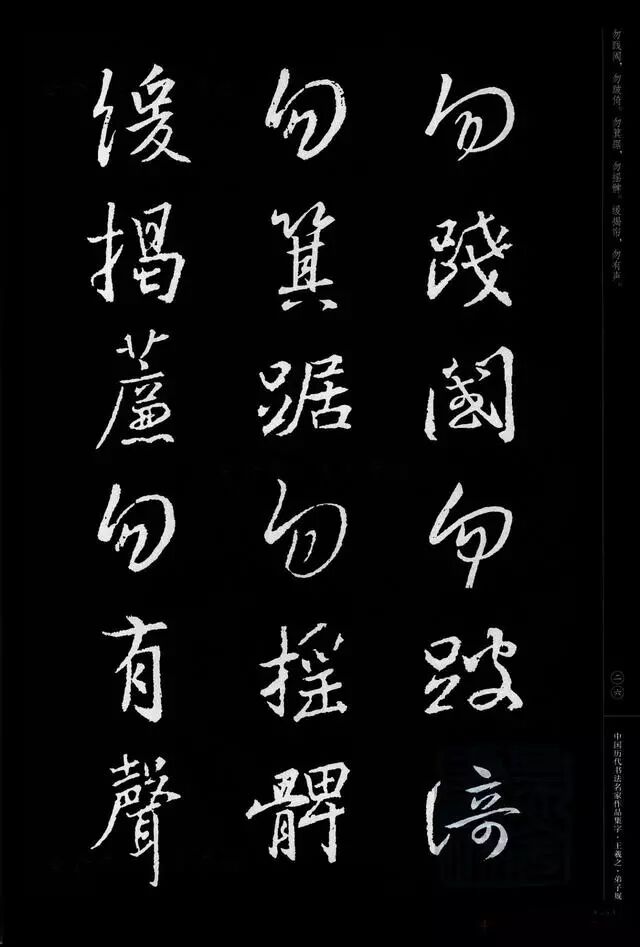 勿践阈，勿跛倚。勿箕踞，勿摇髀。缓揭帘，勿有声。
勿踐閾勿跛倚
勿箕踞勿摇髀
緩揭簾勿有聲
二六
中国历代书法名家作品集字·王羲之·弟子规